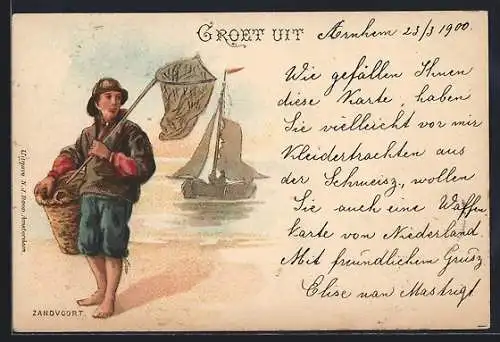 GROET UIT Arnhem 23/3 1900.
Wie gefällen Ihnen
diese Karte, haben
Sie vielleicht vor mir
Kleidertrachten aus
der Schweisz, wollen
Sie auch eine Waffen
karte von Niederland.
Mit freundlichem Grüsz
Elise van Mastrigt
Uitgave N. J. Boon, Amsterdam
ZANDVOORT.